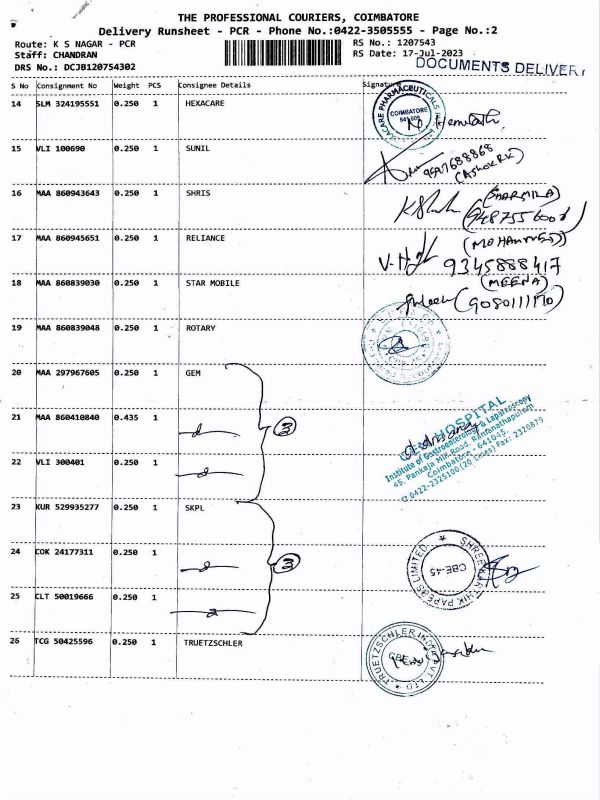 THE PROFESSIONAL COURIERS, COIMBATORE
Delivery Runsheet - PCR - Phone No.:0422-3505555 - Page No.:2
Route: K S NAGAR - PCR RS No.: 1207543
Staff: CHANDRAN RS Date: 17-Jul-2023
DRS No.: DCJB120754302 DOCUMENTS DELIVER
S No Consignment No Weight PCS Consignee Details Signature
14 SLM 324195551 0.250 1 HEXACARE
COIMBATORE
15 VLI 100690 0.250 1 SUNIL
(ASHOK RK)
16 MAA 860943643 0.250 1 SHRIS
(SHARMILA)
17 MAA 860945651 0.250 1 RELIANCE
9345888417
18 MAA 860839030 0.250 1 STAR MOBILE
(MEENA)
19 MAA 860839048 0.250 1 ROTARY
20 MAA 297967605 0.250 1 GEM
21 MAA 860410840 0.435 1
3
HOSPITAL
Institute of Gastroenterology & Laparoscopy
45, Pankaja Mill Road, Ramanathapuram
Coimbatore - 641045.
0422-2325100 (20 Lines) Fax: 2320879
22 VLI 300401 0.250 1
23 KUR 529935277 0.250 1 SKPL
24 COK 24177311 0.250 1
3
SHREE KARTHIK PAPERS LIMITED
CBE-45
25 CLT 50019666 0.250 1
26 TCG 50425596 0.250 1 TRUETZSCHLER
TRUETZSCHLER INDIA PVT LTD